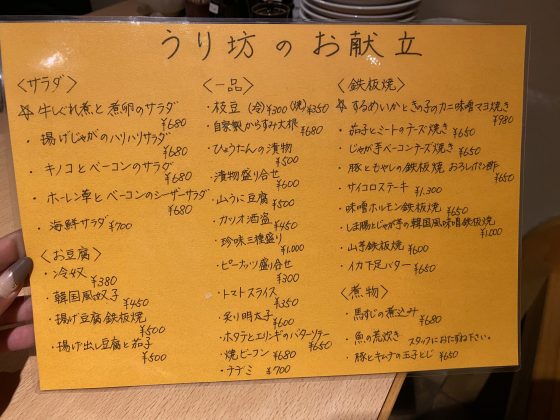 うり坊のお献立
〈サラダ〉
牛しぐれ煮と煮卵のサラダ
¥680
・揚げじゃがのハリハリサラダ
¥680
・キノコとベーコンのサラダ
¥680
・ホーレン草とベーコンのシーザーサラダ
¥680
・海鮮サラダ ¥700
〈お豆腐〉
・冷奴 ¥380
・韓国風奴子 ¥450
・揚げ豆腐鉄板焼 ¥500
・揚げ出し豆腐と茄子 ¥500
〈一品〉
・枝豆 (冷)¥300 (焼)¥350
・自家製からすみ大根 ¥680
・ひょうたんの漬物 ¥500
・漬物盛り合せ ¥600
・山うに豆腐 ¥500
・カツオ酒盗 ¥450
・珍味三種盛り ¥1.000
・ピーナッツ盛り合せ ¥300
・トマトスライス ¥350
・炙り明太子 ¥600
・ホタテとエリンギのバターソテー ¥650
・焼ビーフン ¥680
・チヂミ ¥700
〈鉄板焼〉
するめいかときの子のカニ味噌マヨ焼き ¥980
・茄子とミートのチーズ焼き ¥650
・じゃが芋ベーコンチーズ焼き ¥650
・豚ともやしの鉄板焼 おろしポン酢 ¥650
・サイコロステーキ ¥1.300
・味噌ホルモン鉄板焼 ¥650
・しま腸とじゃが芋の韓国風味噌鉄板焼 ¥1.000
・山芋鉄板焼 ¥600
・イカ下足バター ¥650
〈煮物〉
・馬すじの煮込み ¥680
・魚の荒炊き スタッフにおたずね下さい。
・豚とキムチの玉子とじ ¥650